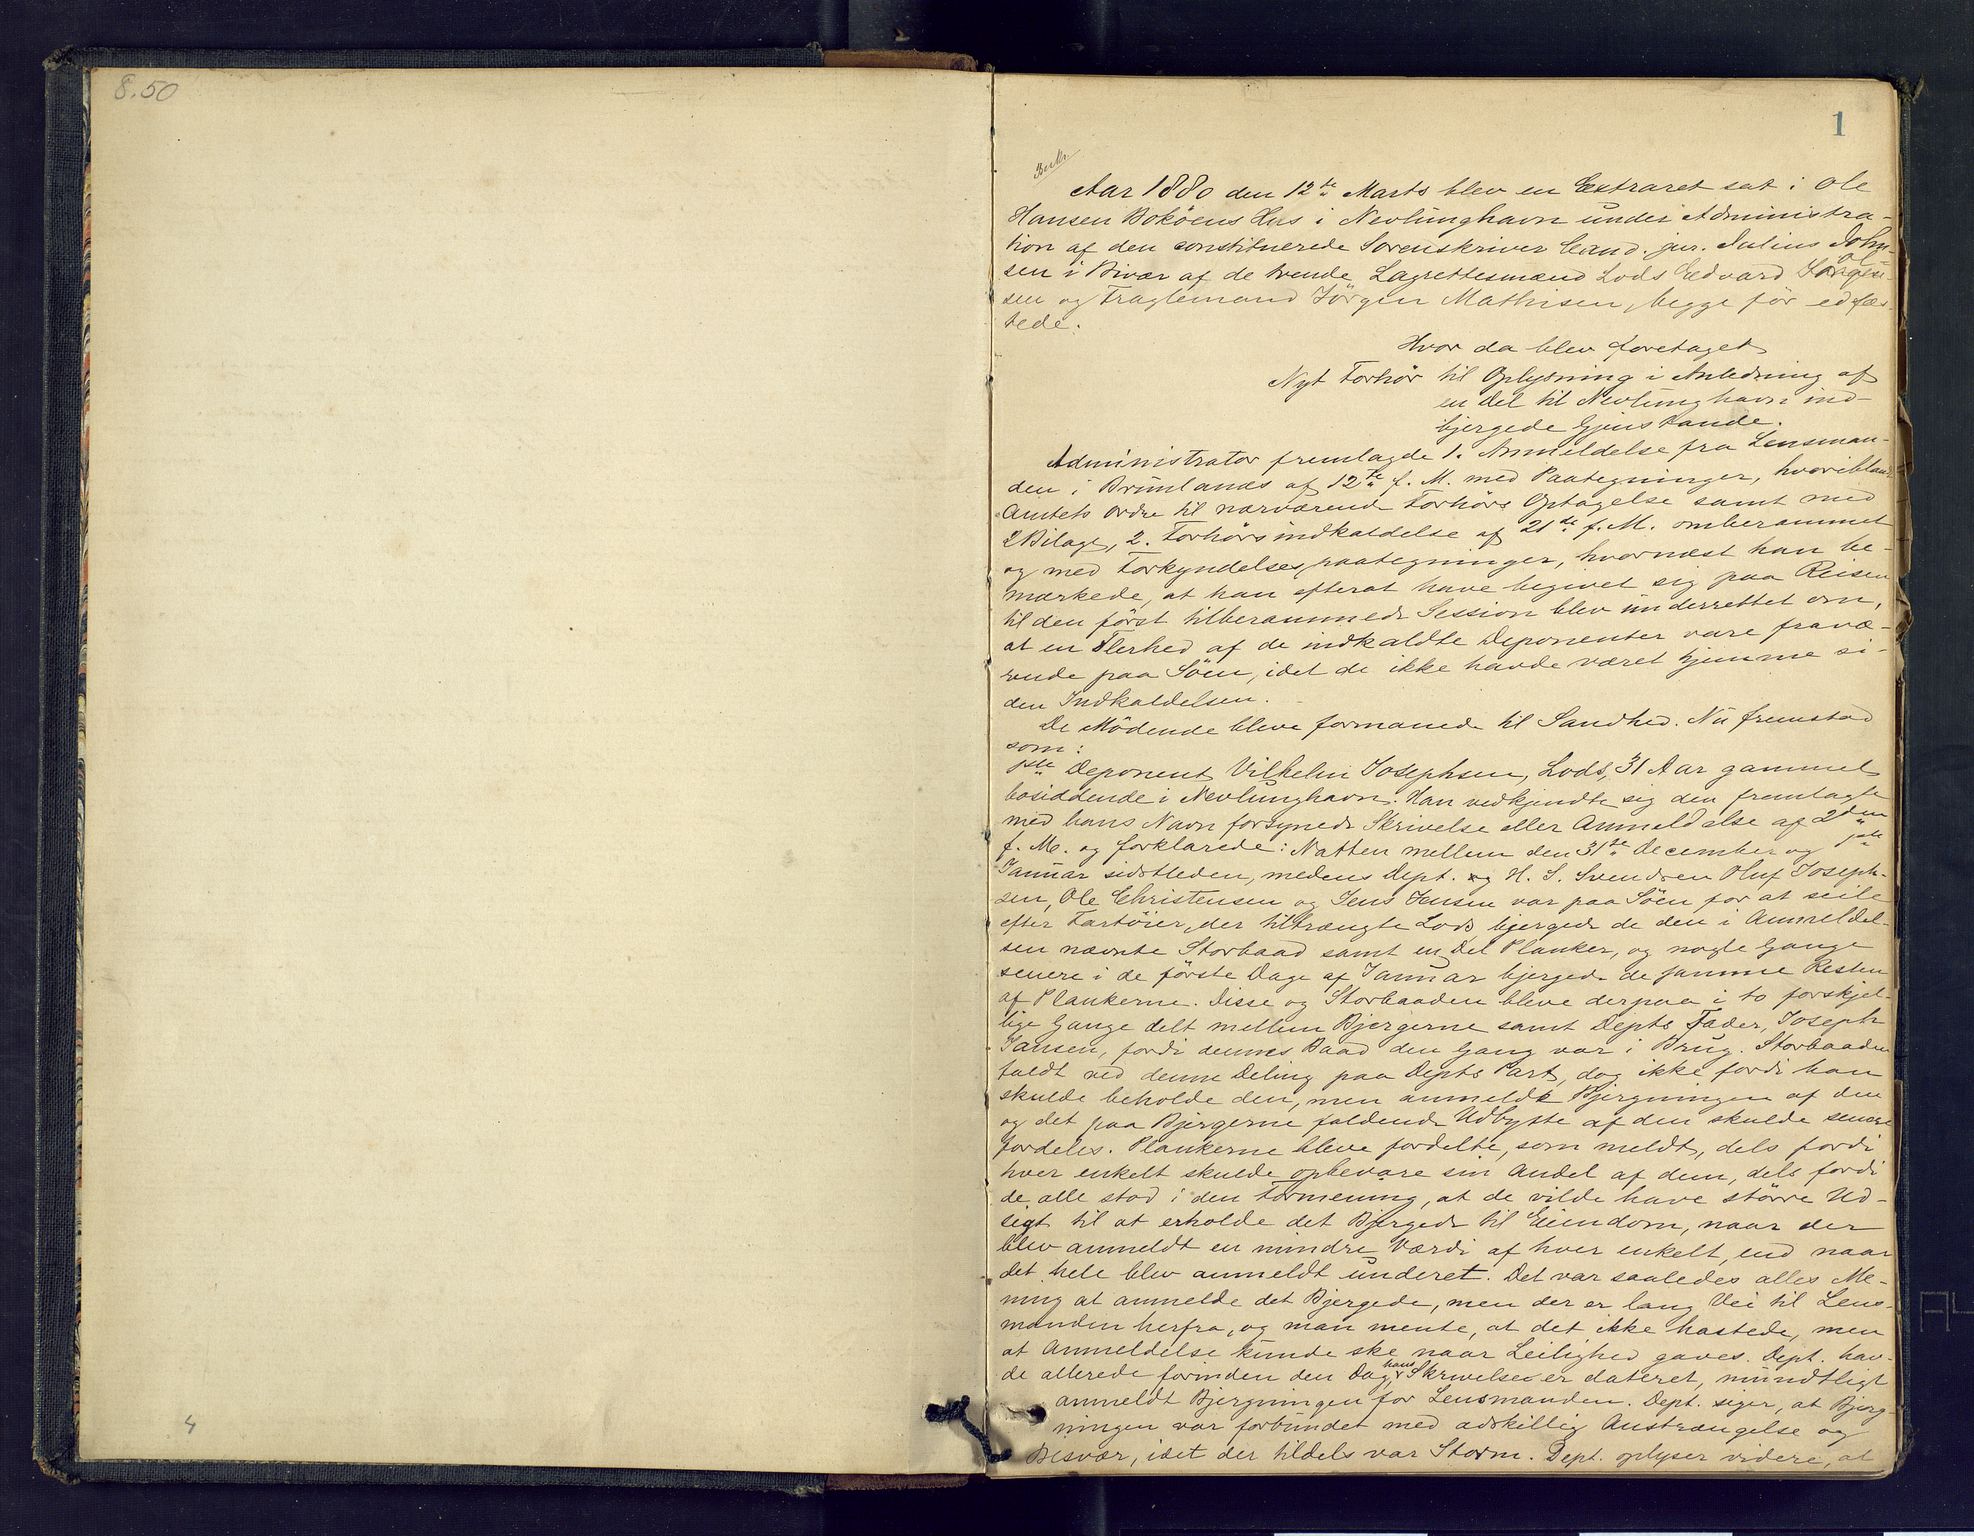 8.50
1
Aar 1880 den 12te Marts blev en Extraret sat i Ole
Hansen Boköens Hus i Nevlunghavn under Administra-
tion af den constituerede Sorenskriver Cand. jur. Julius John-
sen i Bivær af de tvende Lagrettesmænd Lods Edvard
sen og Fraglemand Jörgen Mathisen, begge för edfæs-
tede.
Hvor da blev foretaget
Nyt Forhör til Oplysning i Anledning af
en Del til Nevlunghavn ind-
bjergede Gjenstande.
Administrator fremlagde 1. Anmeldelse fra Lensman-
den i Brunlanæs af 12te f. M. med Paategninger, hvoriblandt
Amtets Ordre til nærværende Forhörs Optagelse samt med
2 Bilage, 2. Forhörsindkaldelse af 21de f. M. omberammet
og med Forkyndelsespaategninger, hvornæst han be-
mærkede, at han efterat have begivet sig paa Reisen
til den först tilberammede Session blev underrettet om,
at en Flerhed af de indkaldte Deponenter vare fravæ-
rende paa Söen, idet de ikke havde været hjemme si-
den Indkaldelsen.
De Mödende bleve formanede til Sandhed. Nu fremstod
som:
1ste Deponent Vilhelm Josephsen, Lods, 31 Aar gammel
bosiddende i Nevlunghavn. Han vedkjendte sig den fremlagte
med hans Navn forsynede Skrivelse eller Anmeldelse af 2den
f. M. og forklarede: Natten mellem den 31te December og 1ste
Januar sidstleden, medens Dept. og H. S. Svendsen Oluf Joseph-
sen, Ole Christensen og Jens Jensen var paa Söen for at seile
efter Fartöier, der tiltrængte Lods, bjergede de den i Anmeldel-
sen nævnte Storbaad samt en Del Planker, og nogle Gange
senere i de förste Dage af Januar bjergede de samme Resten
af Plankerne. Disse og Storbaaden bleve derpaa i to forskjel-
lige Gange delt mellem Bjergerne samt Depts Fader, Joseph
Jansen, fordi dennes Baad den Gang var i Brug. Storbaaden
faldt ved denne Deling paa Depts Part, dog ikke fordi han
skulde beholde den, men anmelde Bjergningen af den
og det paa Bjergerne faldende Udbytte af den skulde senere
fordeles. Plankerne bleve fordelte, som meldt, dels fordi
hver enkelt skulde opbevare sin Andel af dem, dels fordi
de alle stod i den Formening, at de vilde have större Ud-
sigt til at erholde det Bjergede til Eiendom, naar der
blev anmeldt en mindre Værdi af hver enkelt, end naar
det hele blev anmeldt underet. Det var saaledes alles Me-
ning at anmelde det Bjergede, men der er lang Vei til Lens-
manden herfra, og man mente, at det ikke hastede, men
at Anmeldelse kunde ske naar Leilighed gaves. Dept. hav-
de allerede forinden den Dag, hans Skrivelse er dateret, mundtligt
anmeldt Bjergningen for Lensmanden. Dept. siger, at Bjerg
ningen var forbundet med adskillig Anstrængelse og
Besvær, idet der tildels var Storm. Dept. oplyser videre, at
4